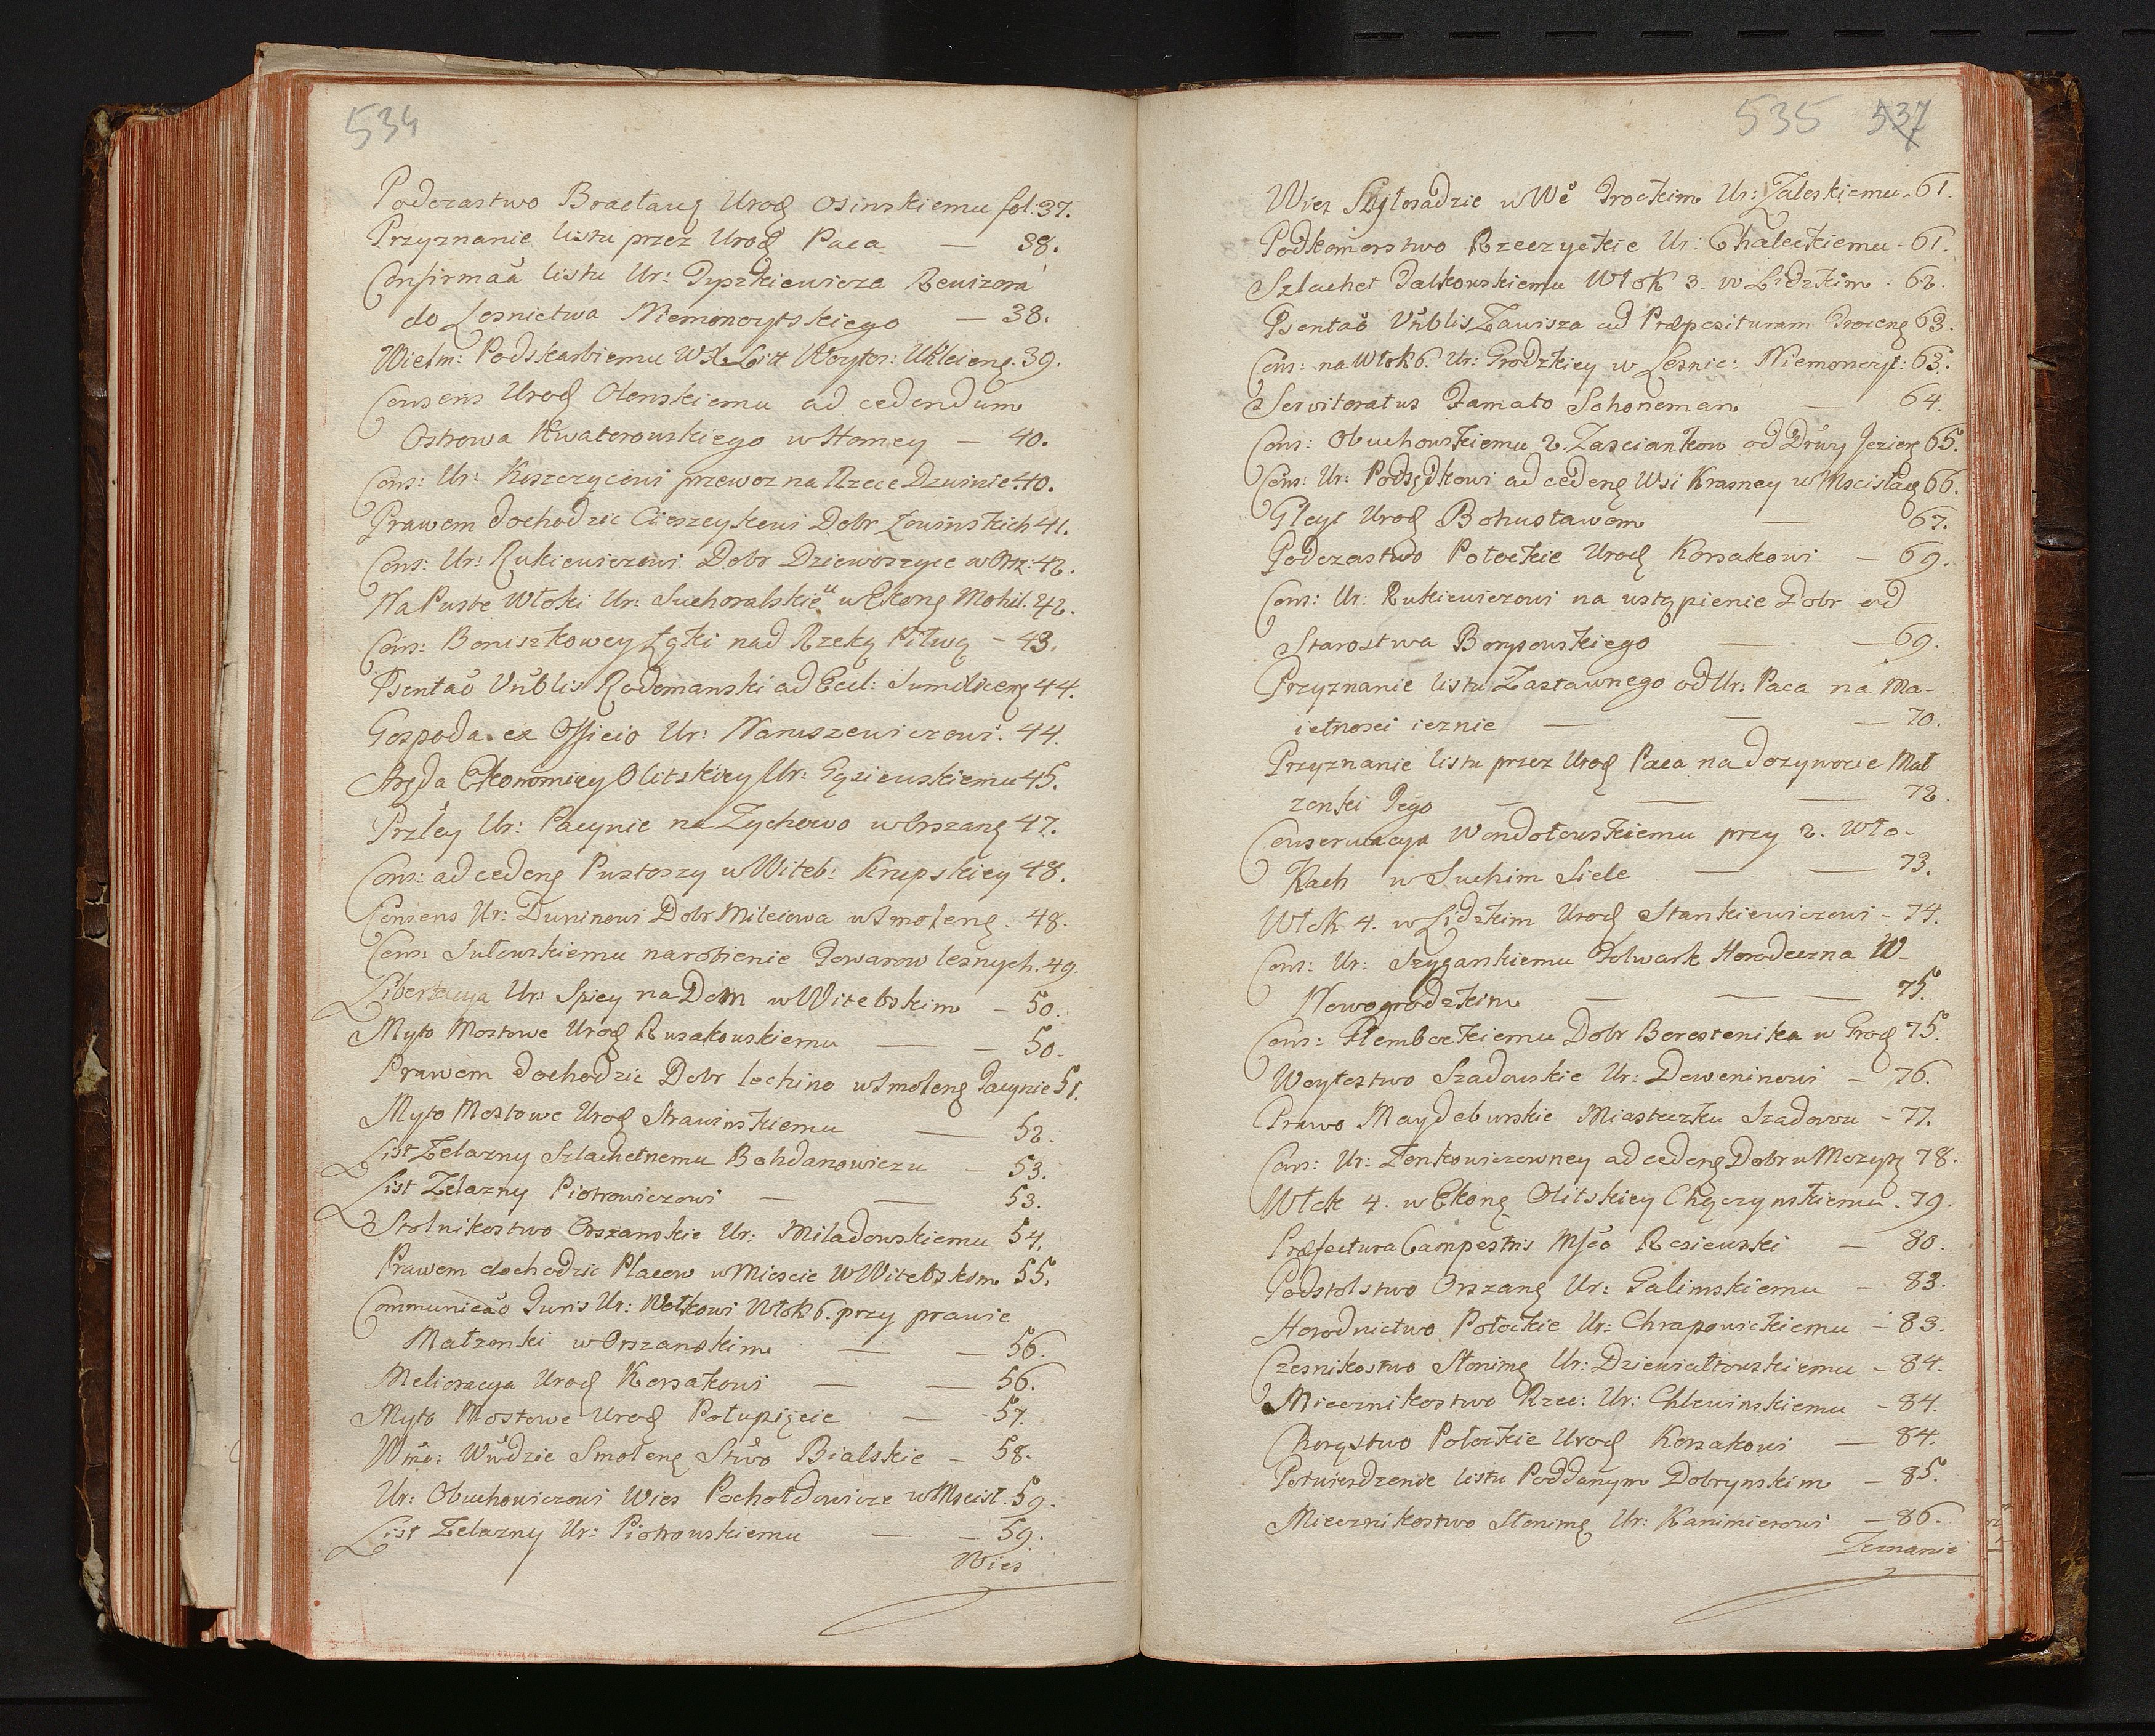 534
Podczastwo Bracławȩ Urod Osinskiemu fol. 37.
Przyznanie listu przez Urod Paca — 38.
Confirmaā listu Ur: Tyszkiewicza Rewizora
do Lesnictwa Niemonoytskiego — 38.
Wielm: Podskarbiemu WXLitt Woytos: Uklieinȩ. 39.
Consens Urod Olenskiemu ad cedendum
Ostrowa Kwaterowskiego w Homey — 40.
Cons: Ur: Koszczycowi przewoz na Rzece Dzwinie. 40.
Prawem dochodzic Cieszeykowi Dobr Łowinskich 41.
Cons: Ur: Rukiewiczowi Dobr Dziewoszyce w Orsz: 42.
Na Puste Włoki Ur: Suchoralskieu w Ekonȩ Mohil. 42.
Cons: Boniszkowey Łąki nad Rzeką Piłwą — 43.
Psentaō Vnblis Rodomanski ad Eccl: Sumilicenȩ 44.
Gospoda ex Officio Ur: Naruszewiczowi. 44.
Aręda Ekonomiey Olitskiey Ur: Gąsiewskiemu 45.
Przley Ur: Pacynie na Zychowo w Orszanȩ 47.
Cons: ad cedenȩ Pustoszy w Witeb: Krupskiey 48.
Consens Ur: Duninowi Dobr Mileiowa w Smolenȩ. 48.
Cons: Sułowskiemu na robienie Towarow lesnych. 49.
Libertacya Ur: Spiey na Dom w Witebskim — 50.
Myto Mostowe Urod Rusakowskiemu — — 50.
Prawem dochodzic Dobr lochino w Smolenȩ Pacynie 51.
Myto Mostowe Urod Strawinskiemu — 52.
List Zelazny Szlachetnemu Bohdanowiczu — 53.
List Zelazny Piotrowiczowi — — 53.
Stolnikostwo Orszanskie Ur: Miladowskiemu 54.
Prawem dochodzic Placow w Miescie W Witebskim 55.
Communicaō Juris Ur: Wołkowi Włok 6. przy prawie
Małzonki w Orszanskim — — 56.
Melioracya Urod Korsakowi — — 56.
Myto Mostowe Urod Połupięcie — 57.
Wmo: Wwdzie Smolenȩ Stwo Bialskie — 58.
Ur: Obuchowiczowi Wies Pochołdowicze w Mscisł. 59.
List Zelazny Ur: Piotrowskiemu — — 59.
Wies
535 537
Wies Szyłosadzie w We Trockim Ur: Zaleskiemu. 61.
Podkomorstwo Rzeczyckie Ur: Chaleckiemu — 61.
Szlachet Jalkowskiemu Włok 3. w Lidzkim. 62.
Psentaō Vnblis Zawisza ad Præposituram Trocenȩ 63.
Cons: na Włok 6. Ur: Grodzkiey w Lesnic: Niemonoyt: 63.
Servitoratus Famato Schoneman — 64.
Cons: Obuchowskiemu 2. Zasciankow od Druy Jezierȩ 65.
Cons: Ur: Podsędkowi ad cedenȩ Wsi Krasney w Mscisławȩ 66.
Gleyt Urod Bohusławom — 67.
Podczastwo Połockie Urod Korsakowi — 69.
Cons: Ur: Rukiewiczowi na ustąpienie Dobr od
Starostwa Bonpowskiego — — 69.
Przyznanie listu Zastawnego od Ur: Paca na Ma-
iętnosci ieznie — — — 70.
Przyznanie listu przez Urod Paca na dozywocie Mał
zonki Jego — — — 72.
Conserwacya Wondołowskiemu przy 2. Wło-
kach w Suchim Siele — — 73.
Włok 4. w Lidzkim Urod Stankiewiczowi — 74.
Cons: Ur: Szygankiemu Folwark Horodeczna W-
Nowogrodzkim — — — 75.
Cons: Hłembockiemu Dobr Berestenika w Grod 75.
Woytostwo Szadowskie Ur: Doweninowi — 76.
Prawo Maydeburskie Miasteczku Szadowu — 77.
Cons: Ur: Zenkowiczowney ad cedenȩ Dobr w Mozyrȩ 78.
Włok 4. w Ekonȩ Olitskiey Chączynskiemu. 79.
Præfectura Campestris Mfco Rosiewski — 80.
Podstolstwo Orszanȩ Ur: Galimskiemu — 83.
Horodnictwo Połockie Ur: Chrapowickiemu — 83.
Czesnikostwo Słonimȩ Ur: Dziewiałtowskiemu — 84.
Miecznikostwo Rzec: Ur: Chlewinskiemu — 84.
Chorąstwo Połockie Urod Korsakowi — 84.
Potwierdzenie listu Poddanym Dobrynskim — 85.
Miecznikostwo Słonimȩ Ur: Kazimierowi — 86.
Zeznanie